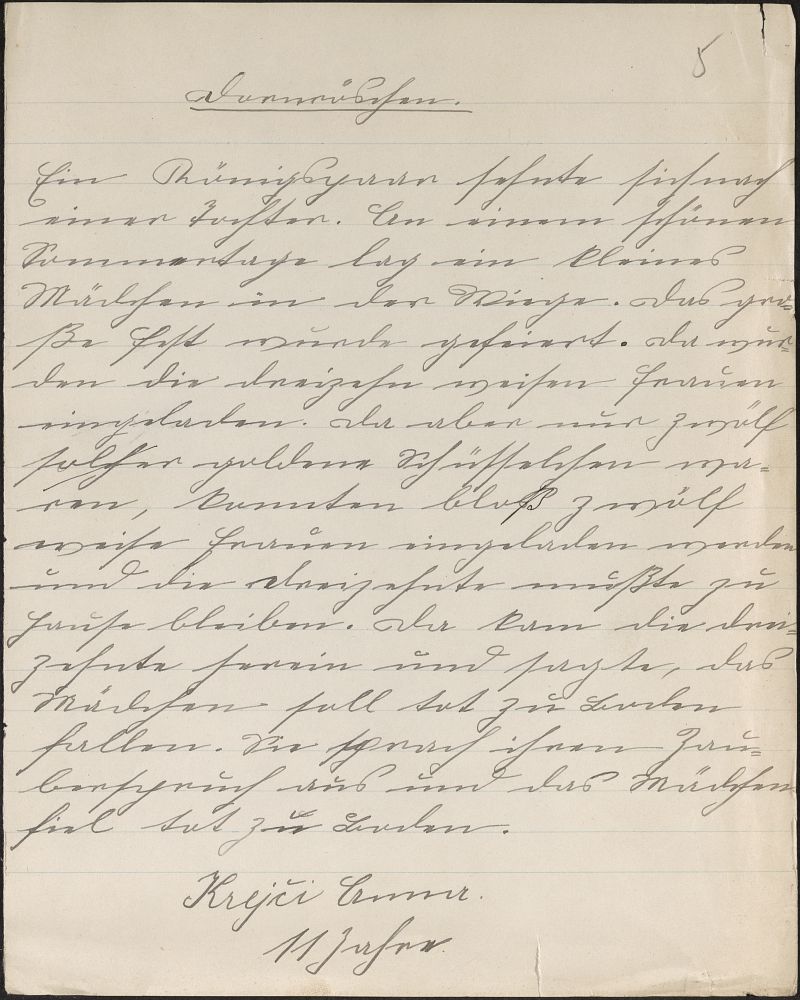 5
Dornröschen.
Ein Königspaar sehnte sich nach
einer Tochter. An einem schönen
Sommertage lag ein kleines
Mädchen in der Wiege. Das gro=
ße Fest wurde gefeiert. Da wur=
den die dreizehn weisen Frauen
eingeladen. Da aber nur zwölf
solcher goldene Schüsselchen wa=
ren, konnten bloß zwölf
weise Frauen eingeladen werden
und die dreizehnte mußte zu
Hause bleiben. Da kam die drei=
zehnte herein und sagte, das
Mädchen soll tot zu Boden
fallen. Sie sprach ihren Zau=
berspruch aus und das Mädchen
fiel tot zu Boden.
Krejči Anna.
11 Jahre.